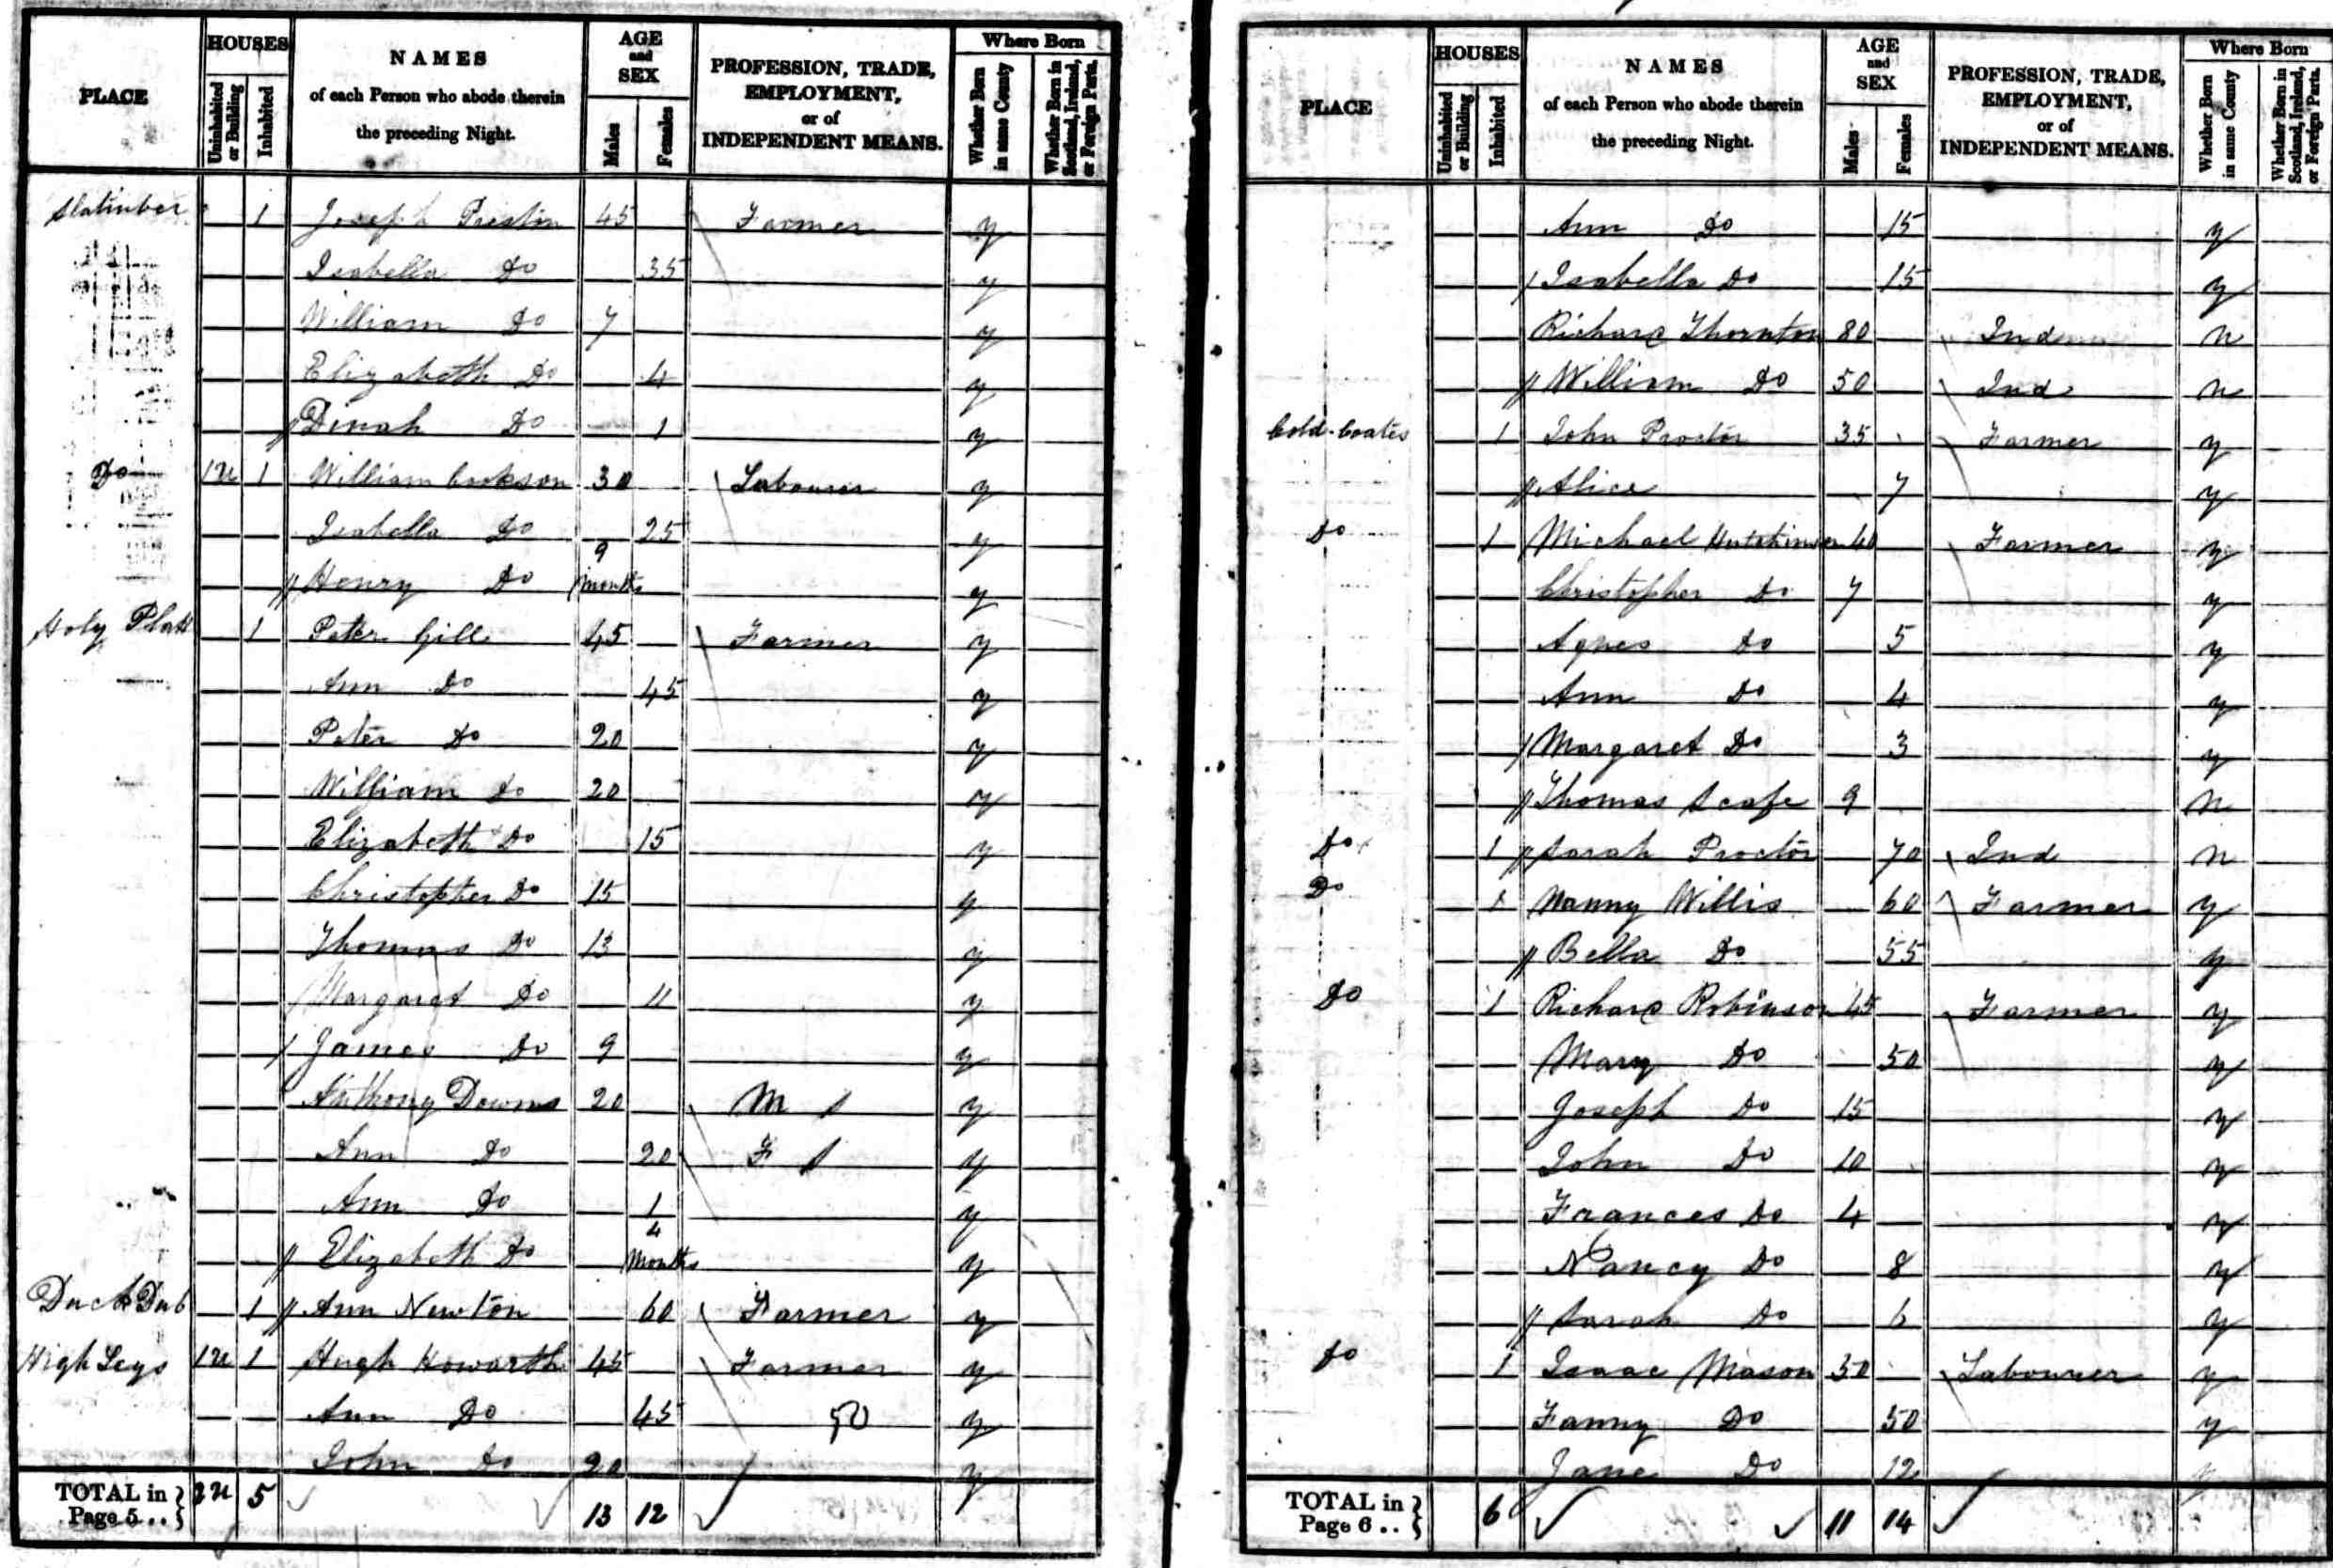 PLACE
HOUSES
Uninhabited or Building
Inhabited
NAMES
of each Person who abode therein
the preceding Night.
AGE
and
SEX
Males
Females
PROFESSION, TRADE,
EMPLOYMENT,
or of
INDEPENDENT MEANS.
Where Born
Whether Born in same County
Whether Born in Scotland, Ireland, or Foreign Parts.
Slatenber 1 Joseph Preston 45 Farmer y
Isabella Do 35 y
William Do 7 y
Elizabeth Do 4 y
Dinah Do 1 y
Do 1u 1 William Cookson 30 Labourer y
Isabella Do 25 y
Henry Do 9 months y
Holy Platt 1 Peter Gill 45 Farmer y
Ann Do 45 y
Peter Do 20 y
William Do 20 y
Elizabeth Do 15 y
Christopher Do 15 y
Thomas Do 13 y
Margaret Do 11 y
James Do 9 y
Anthony Downs 20 M S y
Ann Do 20 F S y
Ann Do 1 y
Elizabeth Do 4 Months y
Duck Dub 1 Ann Newton 60 Farmer y
High Leys 1u 1 Hugh Howarth 45 Farmer y
Ann Do 45 50 y
John Do 20 y
TOTAL in Page 5.. } 2u 5 13 12
PLACE
HOUSES
Uninhabited or Building
Inhabited
NAMES
of each Person who abode therein
the preceding Night.
AGE
and
SEX
Males
Females
PROFESSION, TRADE,
EMPLOYMENT,
or of
INDEPENDENT MEANS.
Where Born
Whether Born in same County
Whether Born in Scotland, Ireland, or Foreign Parts.
Ann Do 15 y
Isabella Do 15 y
Richard Thornton 80 Ind n
William Do 50 Ind n
Cold-Coates 1 John Proctor 35 Farmer y
Alice 7 y
Do 1 Michael Hutchinson 40 Farmer y
Christopher Do 7 y
Agnes Do 5 y
Ann Do 4 y
Margaret Do 3 y
Thomas Scafe 9 n
Do 1 Sarah Proctor 70 Ind n
Do 1 Nanny Willis 60 Farmer y
Bella Do 55 y
Do 1 Richard Robinson 45 Farmer y
Mary Do 50 y
Joseph Do 15 y
John Do 10 y
Frances Do 4 y
Nancy Do 8 y
Sarah Do 6 y
Do 1 Isaac Mason 30 Labourer y
Fanny Do 50 y
Jane Do 12
TOTAL in Page 6.. } 6 11 14